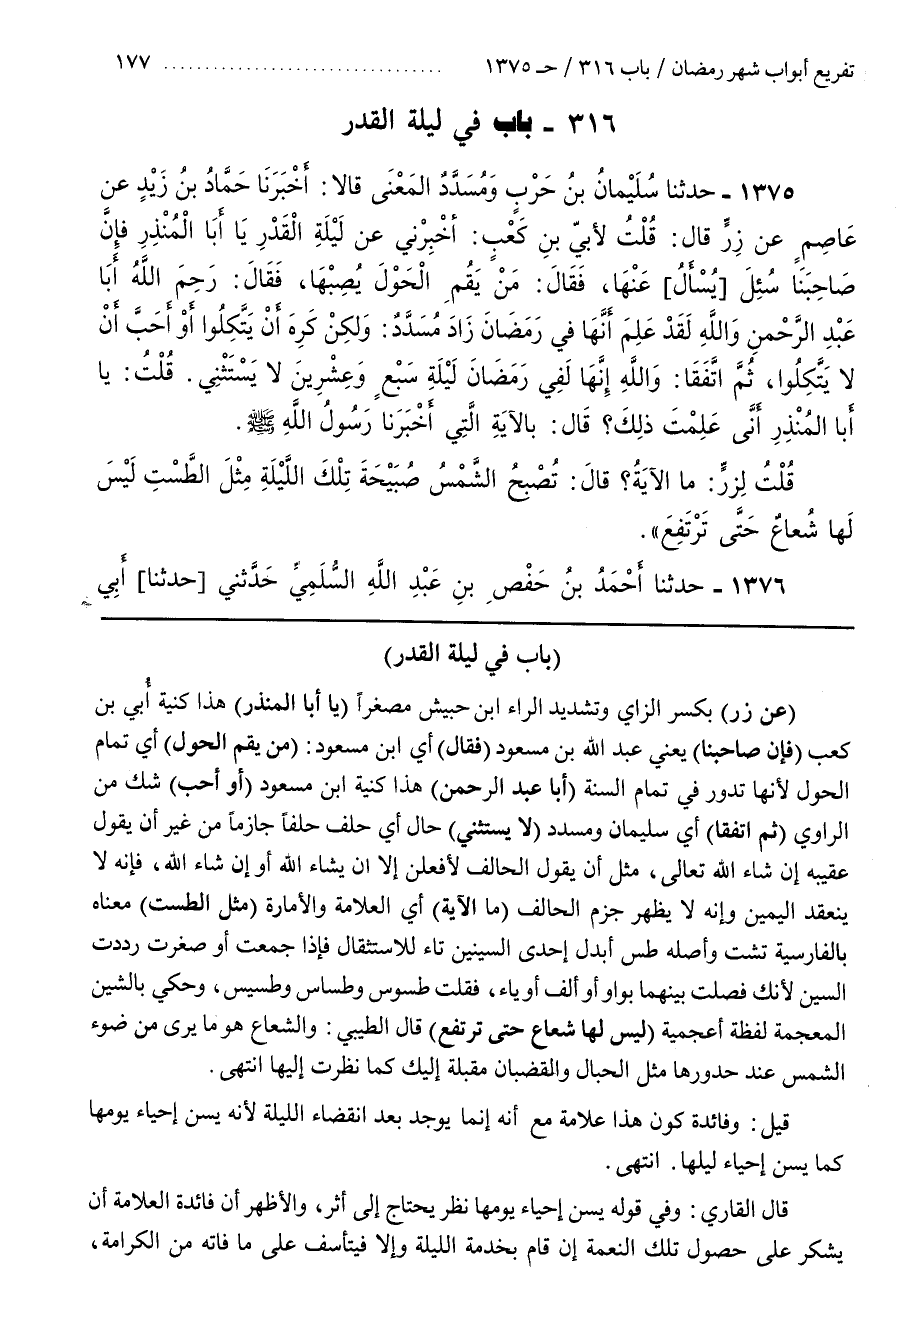 تفريع أبواب شهر رمضان / باب ٣١٦ / حـ ١٣٧٥ .................................. ١٧٧
٣١٦ ـ باب في ليلة القدر
١٣٧٥ ـ حدثنا سُلَيْمانُ بنُ حَرْبٍ وَمُسَدَّدٌ المَعْنَى قالا: أَخْبَرَنَا حَمَّادُ بنُ زَيْدٍ عن
عَاصِمٍ عن زِرٍّ قال: قُلْتُ لأبيِّ بنِ كَعْبٍ: أخْبِرْني عن لَيْلَةِ الْقَدْرِ يَا أَبَا الْمُنْذِرِ فإنَّ
صَاحِبَنَا سُئِلَ [يُسْأَلُ] عَنْهَا، فَقَالَ: مَنْ يَقُمِ الْحَوْلَ يُصِبْهَا، فَقَالَ: رَحِمَ اللَّهُ أبَا
عَبْدِ الرَّحْمنِ وَاللَّهِ لَقَدْ عَلِمَ أَنَّهَا في رَمَضَانَ زَادَ مُسَدَّدٌ: وَلكِنْ كَرِهَ أَنْ يَتَّكِلُوا أَوْ أَحَبَّ أنْ
لا يَتَّكِلُوا، ثُمَّ اتَّفَقَا: وَاللَّهِ إِنَّهَا لَفِي رَمَضَانَ لَيْلَةِ سَبْعٍ وَعِشْرِينَ لا يَسْتَثْنِي. قُلْتُ: يا
أَبا المُنْذِرِ أَنَّى عَلِمْتَ ذلِكَ؟ قال: بالآيَةِ الَّتِي أَخْبَرَنا رَسُولُ اللَّهِ ﷺ.
قُلْتُ لِزِرٍّ: ما الآيَةُ؟ قالَ: تُصْبِحُ الشَّمْسُ صُبَيْحَةَ تِلْكَ اللَّيْلَةِ مِثْلَ الطَّسْتِ لَيْسَ
لَها شُعاعٌ حَتَّى تَرْتَفِعَ».
١٣٧٦ ـ حدثنا أَحْمَدُ بنُ حَفْصِ بنِ عَبْدِ اللَّهِ السُّلَمِيُّ حَدَّثني [حدثنا] أَبي
(باب في ليلة القدر)
(عن زر) بكسر الزاي وتشديد الراء ابن حبيش مصغراً (يا أبا المنذر) هذا كنية أُبي بن
كعب (فإن صاحبنا) يعني عبد الله بن مسعود (فقال) أي ابن مسعود: (من يقم الحول) أي تمام
الحول لأنها تدور في تمام السنة (أبا عبد الرحمن) هذا كنية ابن مسعود (أو أحب) شك من
الراوي (ثم اتفقا) أي سليمان ومسدد (لا يستثني) حال أي حلف حلفاً جازماً من غير أن يقول
عقيبه إن شاء الله تعالى، مثل أن يقول الحالف لأفعلن إلا ان يشاء الله أو إن شاء الله، فإنه لا
ينعقد اليمين وإنه لا يظهر جزم الحالف (ما الآية) أي العلامة والأمارة (مثل الطست) معناه
بالفارسية تشت وأصله طس أبدل إحدى السينين تاء للاستثقال فإذا جمعت أو صغرت رددت
السين لأنك فصلت بينهما بواو أو ألف أو ياء، فقلت طسوس وطساس وطسيس، وحكي بالشين
المعجمة لفظة أعجمية (ليس لها شعاع حتى ترتفع) قال الطيبي: والشعاع هو ما يرى من ضوء
الشمس عند حدورها مثل الحبال والقضبان مقبلة إليك كما نظرت إليها انتهى.
قيل: وفائدة كون هذا علامة مع أنه إنما يوجد بعد انقضاء الليلة لأنه يسن إحياء يومها
كما يسن إحياء ليلها. انتهى.
قال القاري: وفي قوله يسن إحياء يومها نظر يحتاج إلى أثر، والأظهر أن فائدة العلامة أن
يشكر على حصول تلك النعمة إن قام بخدمة الليلة وإلا فيتأسف على ما فاته من الكرامة،